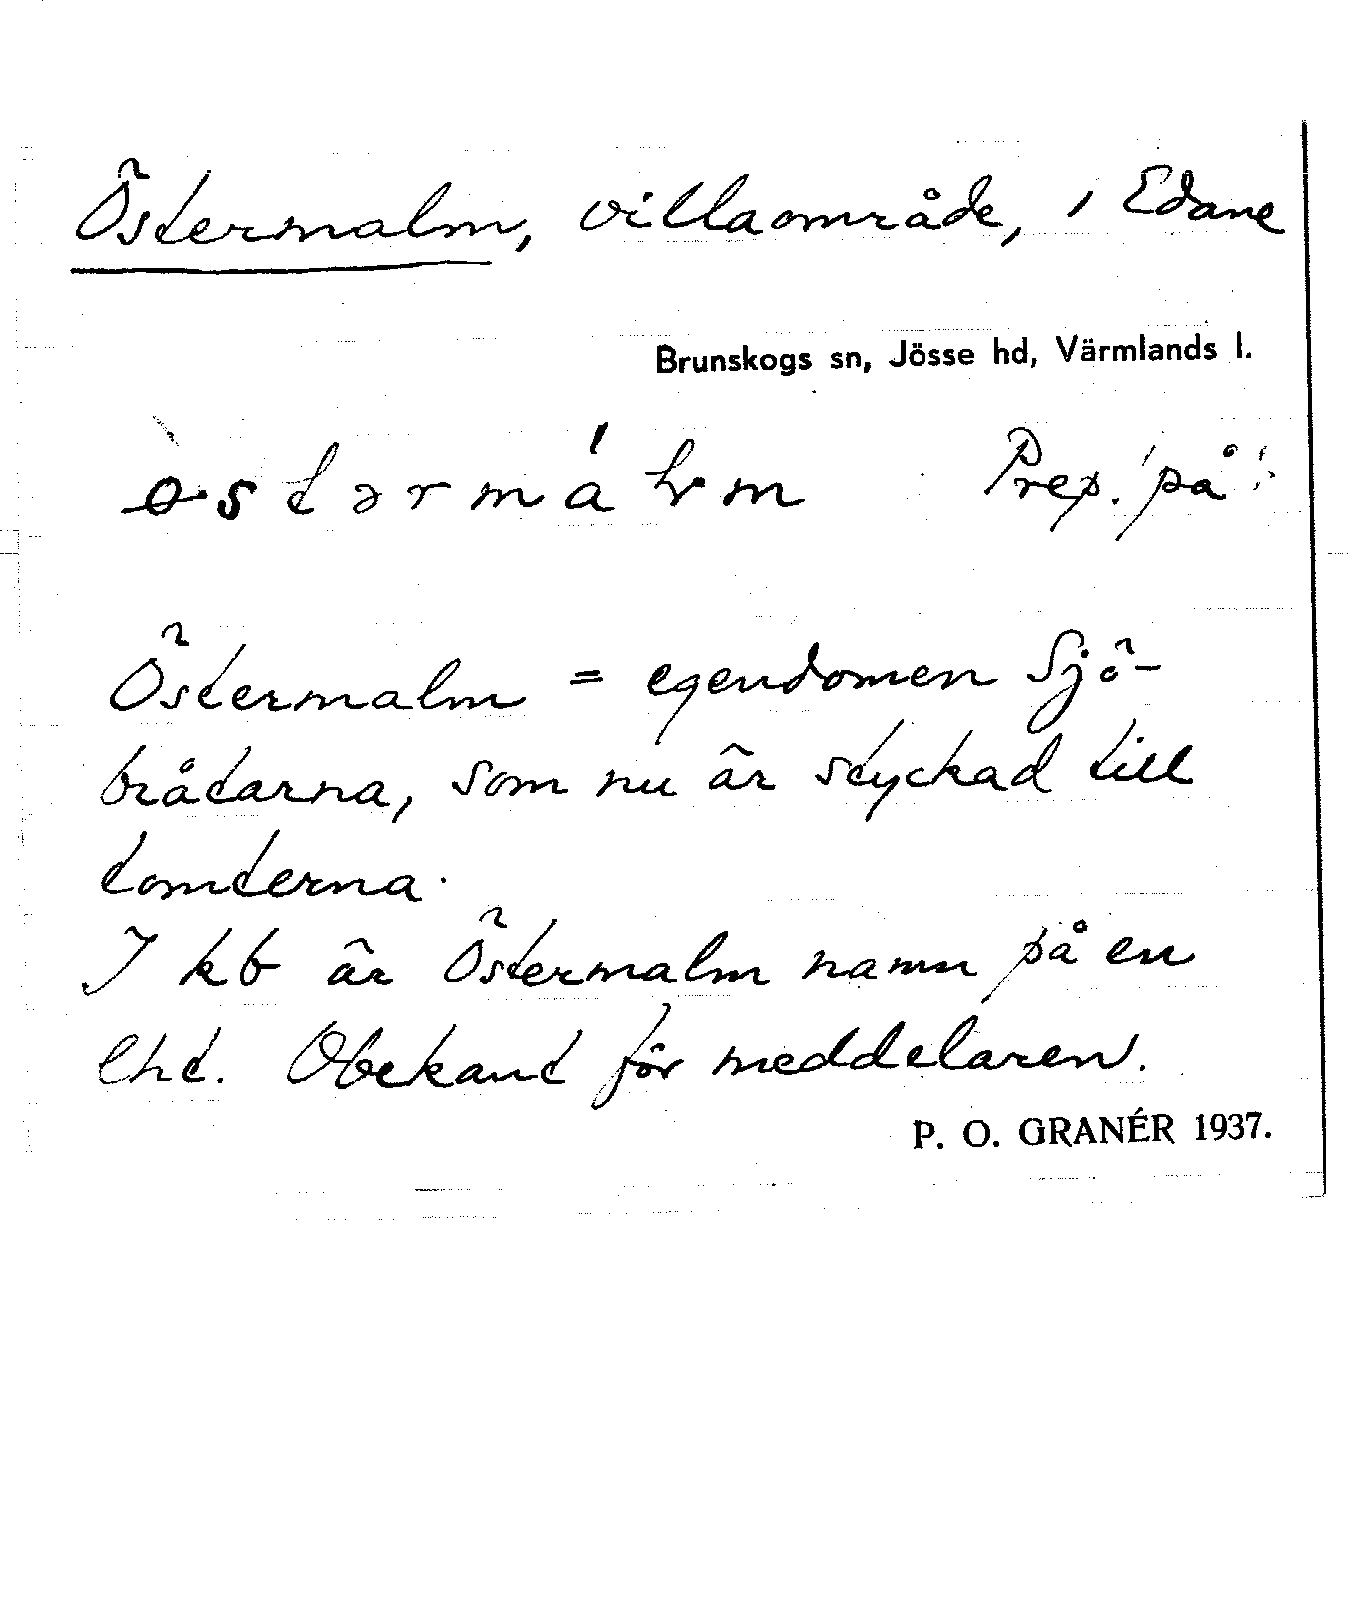 Östermalm, villaområde, i Edane
Brunskogs sn, Jösse hd, Värmlands l.
Prep. 'på'
Östermalm = egendomen Sjö-
bråtarna, som nu är styckad till
tomterna.
I kb är Östermalm namn på en
lht. Obekant för meddelaren.
P. O. GRANÉR 1937.